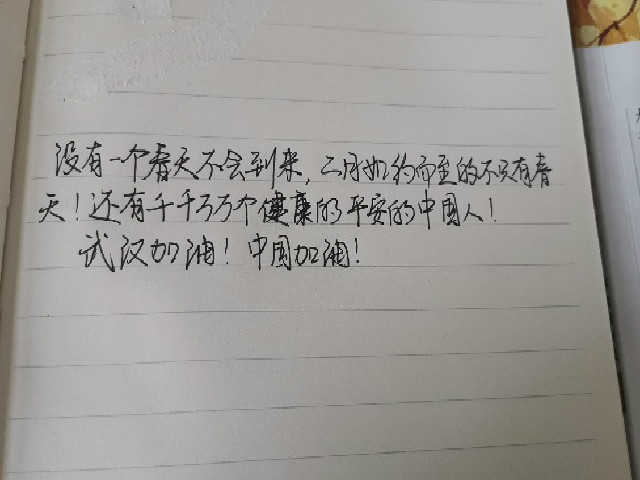 没有一个春天不会到来,二月如约而至的不只有春
天!还有千千万万个健康的平安的中国人!
武汉加油!中国加油!